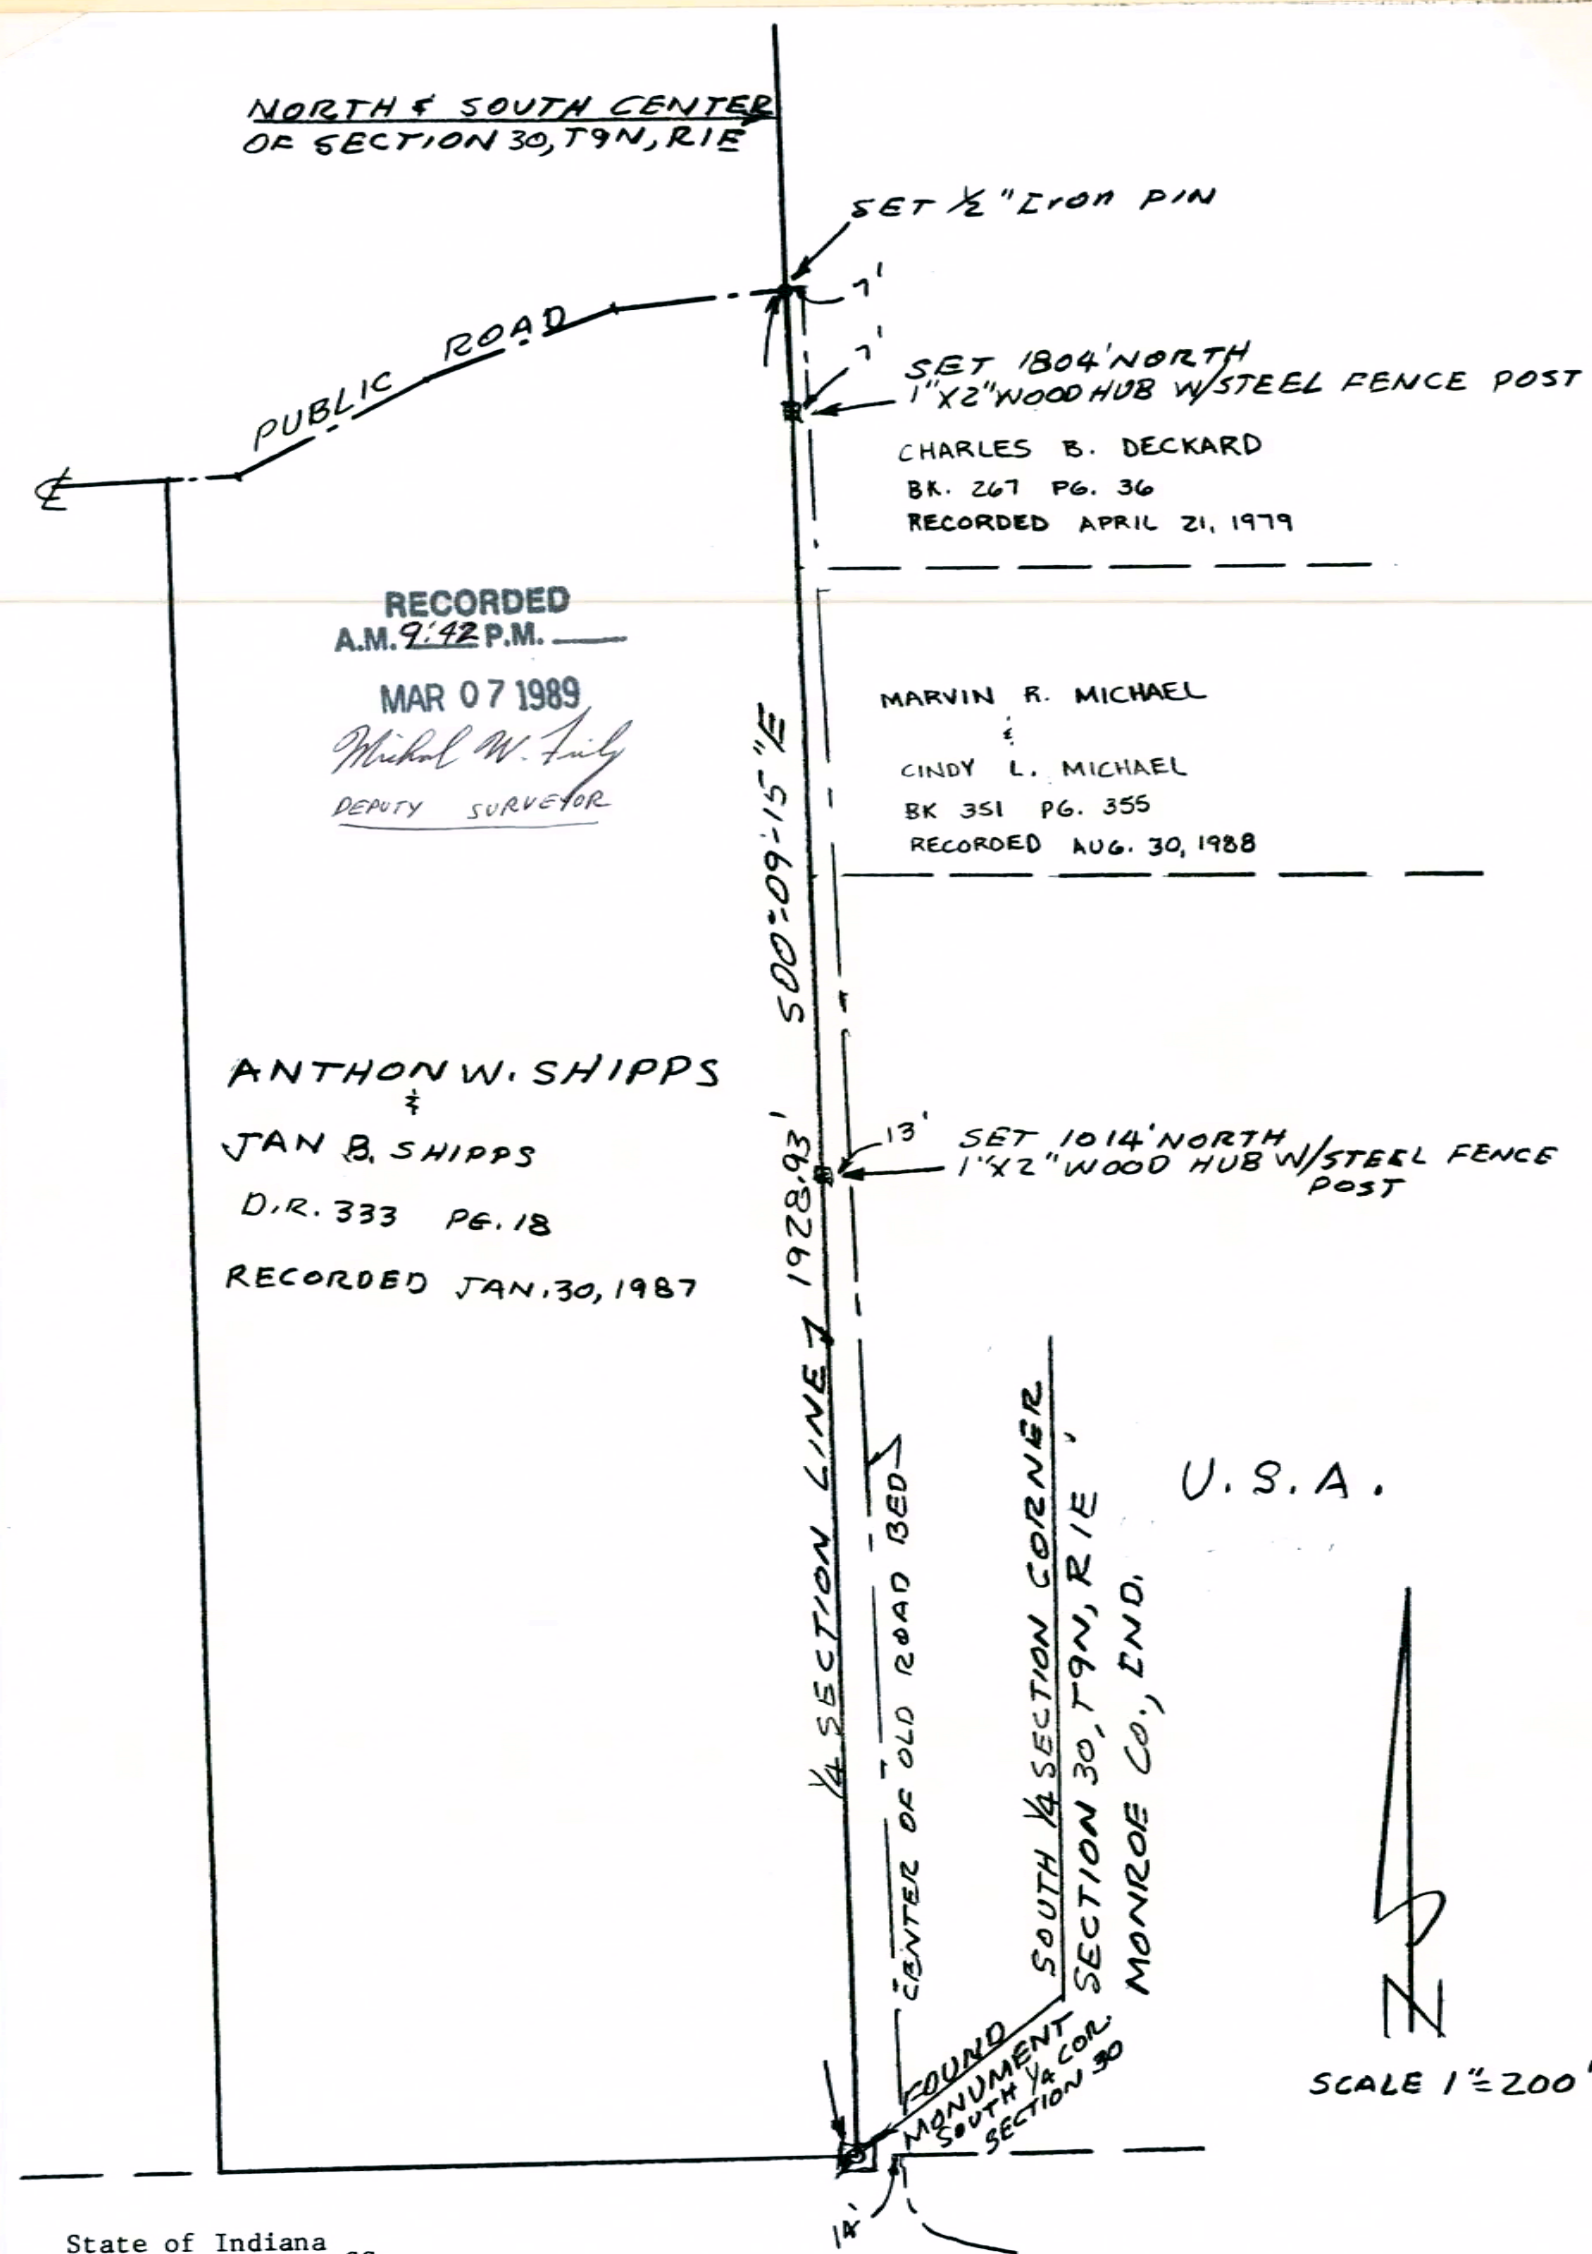 NORTH & SOUTH CENTER
OF SECTION 30, T9N, R1E
SET ½" Iron PIN
7'
7'
PUBLIC ROAD
SET 1804' NORTH
1"X2" WOOD HUB W/STEEL FENCE POST
CHARLES B. DECKARD
BK. 267 PG. 36
RECORDED APRIL 21, 1979
℄
RECORDED
A.M. 9:42 P.M.
MAR 07 1989
DEPUTY SURVEYOR
MARVIN R. MICHAEL
&
CINDY L. MICHAEL
BK 351 PG. 355
RECORDED AUG. 30, 1988
¼ SECTION LINE 1928.93' S00°-09'-15"E
ANTHON W. SHIPPS
&
JAN B. SHIPPS
D.R. 333 PG. 18
RECORDED JAN. 30, 1987
13'
SET 1014' NORTH
1"X2" WOOD HUB W/STEEL FENCE
POST
CENTER OF OLD ROAD BED
SOUTH ¼ SECTION CORNER
SECTION 30, T9N, R1E
MONROE CO., IND.
U.S.A.
N
SCALE 1"=200'
FOUND
MONUMENT
SOUTH ¼ COR.
SECTION 30
State of Indiana